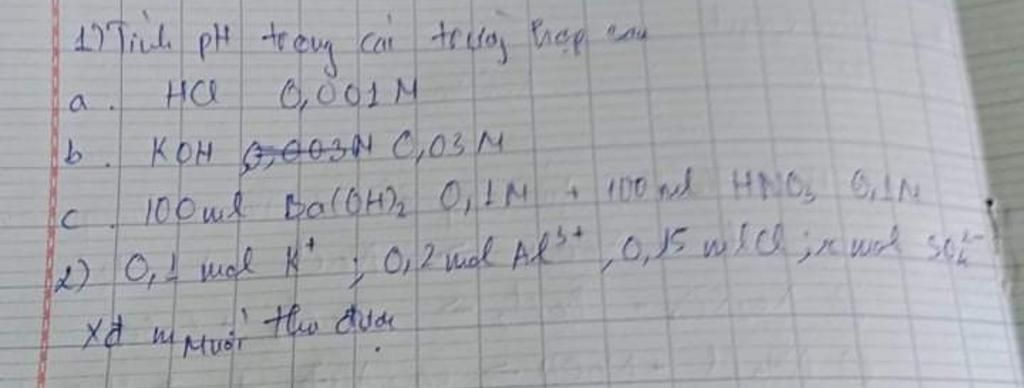 1) Tính pH trong các trường hợp sau
a. HCl 0,001M
b. KOH 0,003M 0,03M
c. 100ml Ba(OH)₂ 0,1M + 100ml HNO₃ 0,1M
2) 0,1 mol K⁺; 0,2 mol Al³⁺, 0,15 mol Cl; x mol SO₄²⁻
Xđ m Muối thu được